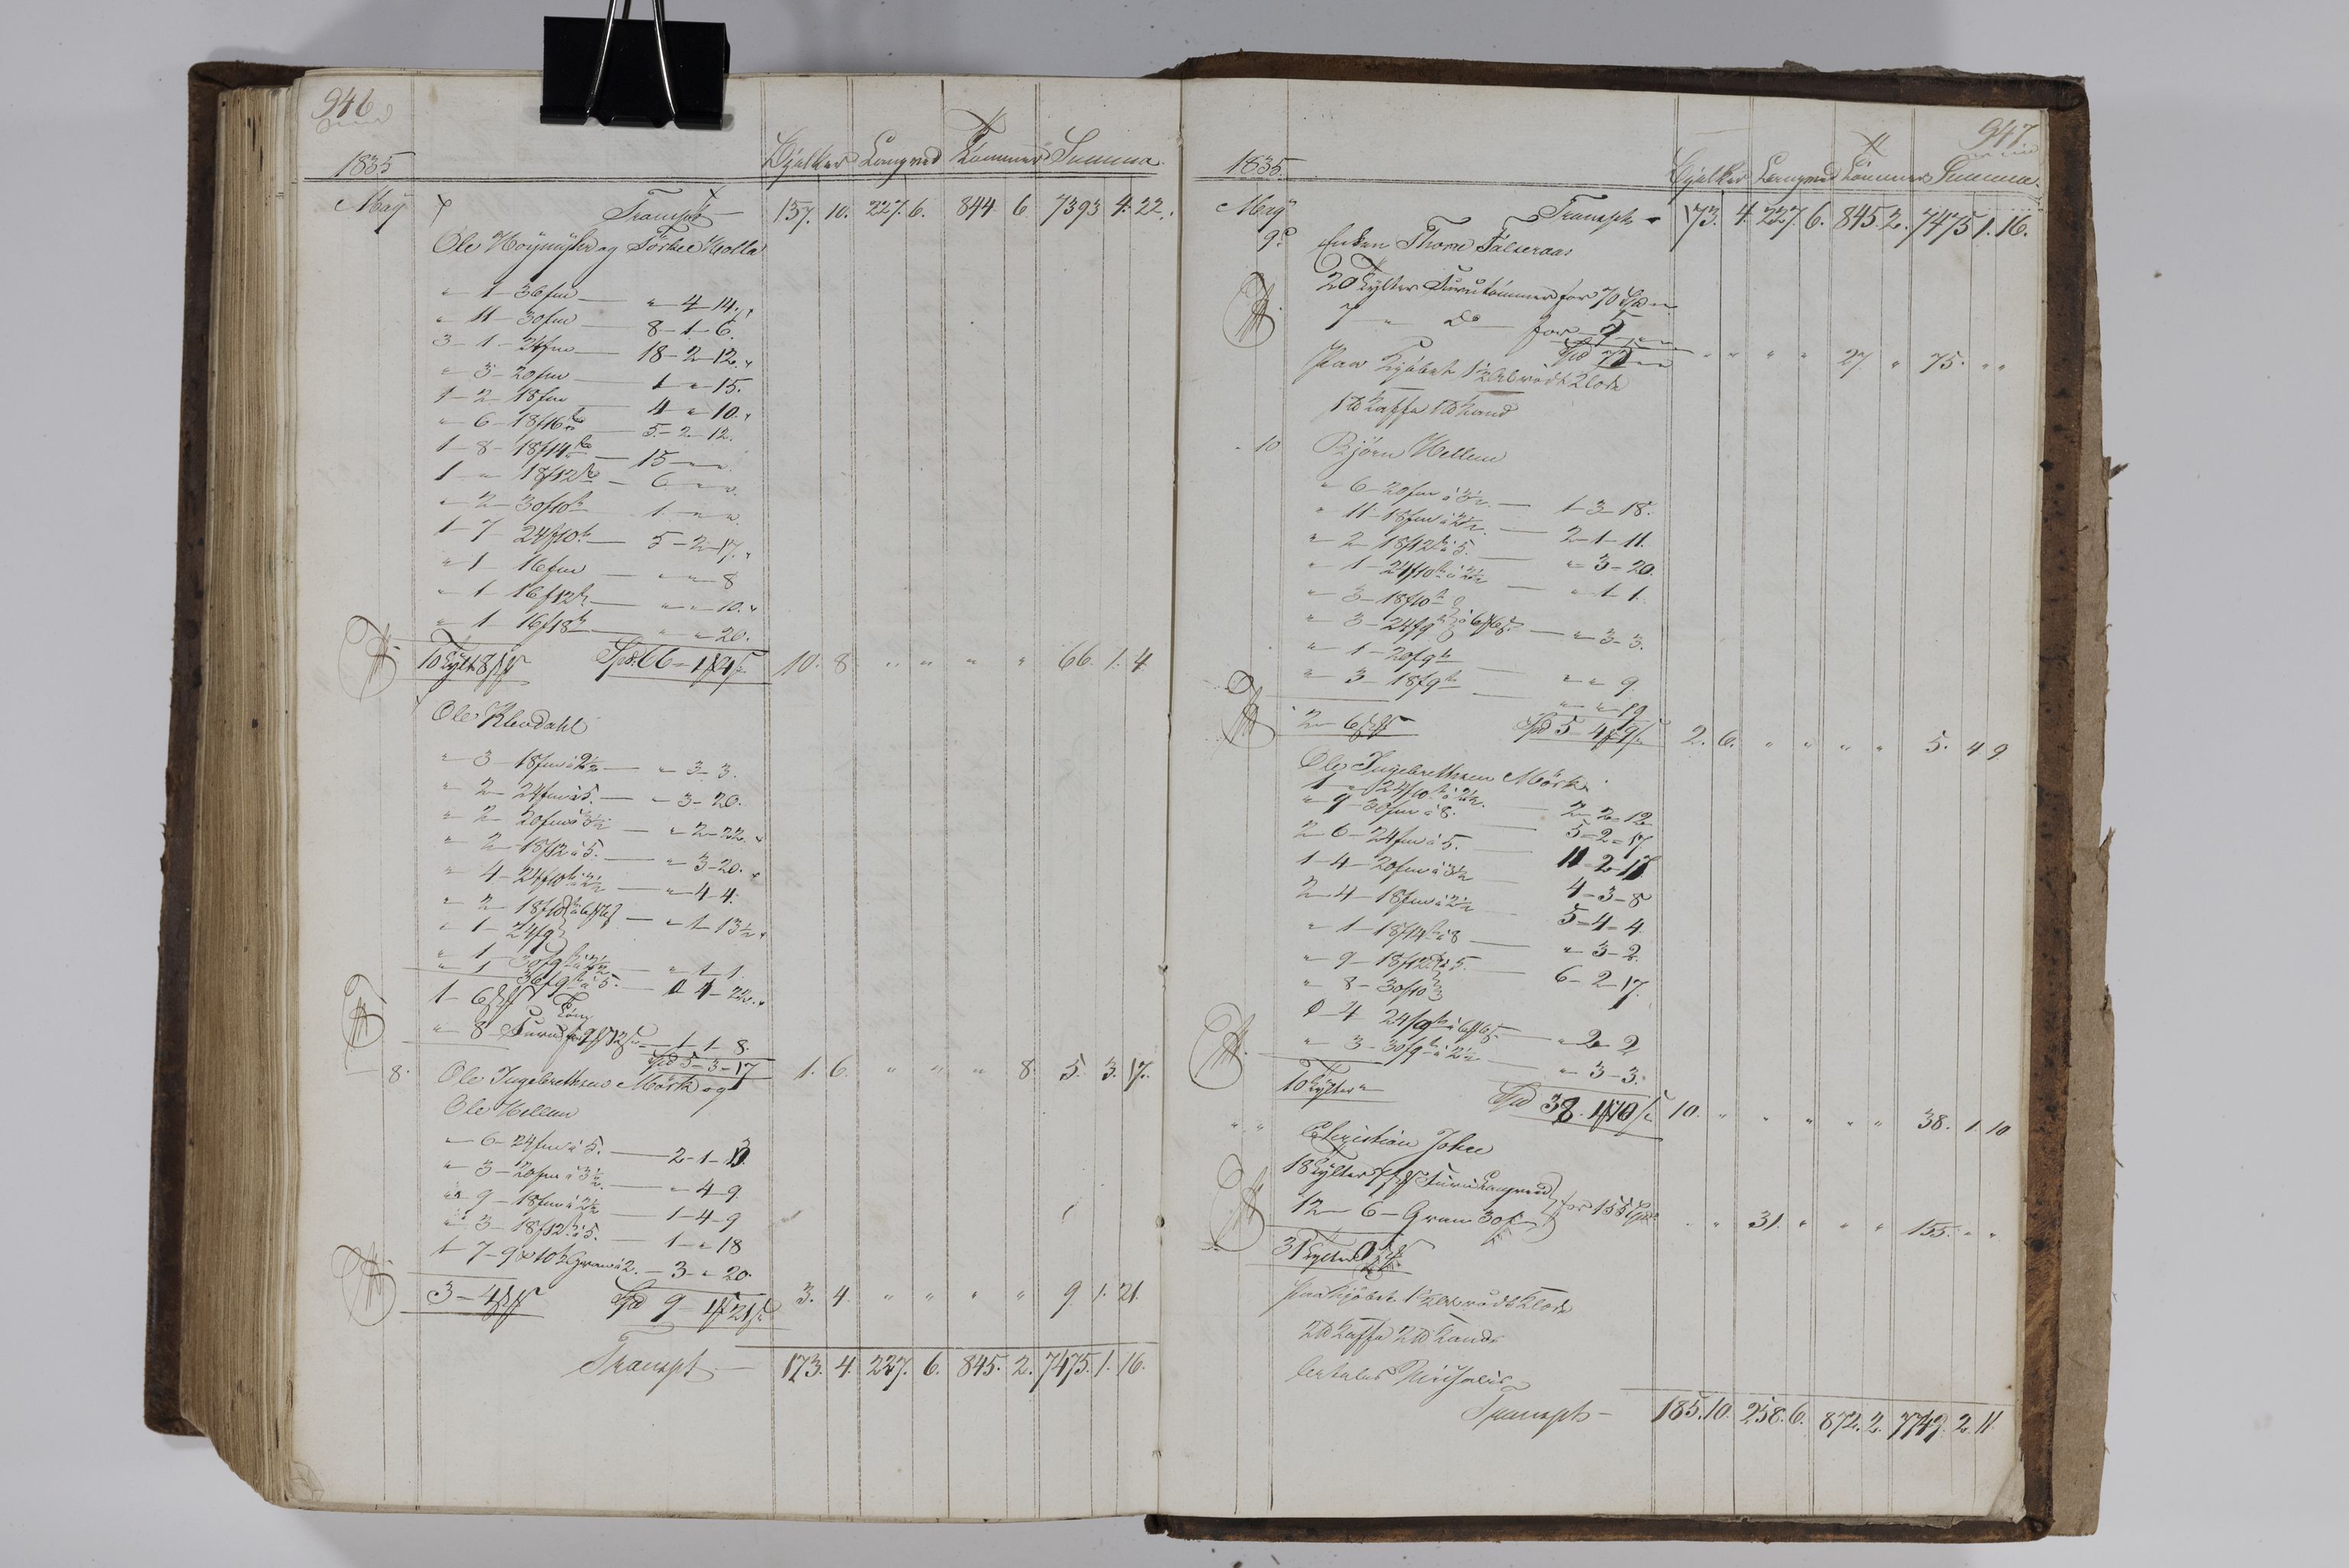 946
1835 Bjelker Langved Tømmer Summa
May Transpt — 157. 10. 227. 6. 844 6 7393 4. 22.
Ole Høymyhr og Tørkel Molla
" 1 – 36 fm — " 4 – 14.
" 11 – 30 fm — 8 – 1 – 6.
3 – 1 – 24 fm — 18 – 2 – 12.
" 3 – 20 fm — 1 " – 15.
1 – 2 – 18 fm — 4 " 10.
" 6 – 18 f 16 t — 5 – 2 – 12.
1 – 8 – 18 f 14 t — 15 – " – "
1 – " 18 f 12 t — 6 – " – "
" 2 – 30 f 10 t — 1 – " – "
1 – 7 – 24 f 10 t — 5 – 2 – 17.
" 1 16 fm — " – " – 8
" 1 – 16 f 12 t — " – " – 10.
" 1 – 16 f 18 t — " – " 20.
10 Tylt 8 Spd. 66 – 1 – 4 10. 8 " " " " 66. 1. 4
Ole Klevdahl
" 3 – 18 fm à 2½ — " 3 – 3.
" 2 – 24 fm à 5. — " 3 – 20.
" 2 – 20 fm à 3½ — " 2 – 22.
" 2 – 18 f 12 à 5. — " 3 – 20.
" 4 – 24 f 10 t à 2½ — " 4 – 4.
" 2 – 18 f 10 t — " 1 – 13½
" 1 – 24 f 9
" 1 30 f 9 t à 2½ — " 1 – 1.
" 1 36 f 9 t à 5. — " 4 – 22.
1 – 6
" 8 Furu 1 – 1 – 8.
Spd 5 – 3 – 17 1. 6. " " " 8. 5. 3. 17.
8. Ole Ingebrethsen Mörk og
Ole Hellen
" 6 – 24 fm à 5. — 2 – 1 – 13.
" 3 – 20 fm à 3½ — " 4 – 9
" 9 – 18 fm à 2½ — 1 – 4 – 9
" 3 – 18 f 12 t à 5. — 1 – " 18
1 – 7 – 9 & 10 t Gran à 2. — 3 – " 20.
3 – 4 Spd 9 – 1 – 21 3. 4 " " " " 9. 1. 21.
Transpt — 173. 4. 227. 6. 845. 2. 7475. 1. 16.
947
1835. Bjelker Langved Tømmer Summa
May Transpt 173. 4. 227. 6. 845. 2. 7475 1. 16.
9 Enken Thore
20 Tylter Furutömmer for 70 Spd " "
7 " Do for 5 – " – "
Spd 75 " " " " " " 27 " 75. " "
Paa Kjøbet rødt Klæde
1 ℔ Kaffe 1 ℔ Kand
10 Björn Hellen
" 6 – 20 fm à 3½ — 1 – 3 – 18.
" 11 – 18 fm à 2½ — 2 – 1 – 11.
" 2 18 f 12 t à 5. — " 3 – 20.
" 1 – 24 f 10 t à 2½ — " 1 – 1.
" 3 – 18 f 10 t
" 3 – 24 f 9 — " 3 – 3.
" 1 – 20 f 9 t — " " 9.
" 3 – 18 f 9 t — " " 19
2 – 6 Spd 5 – 4 – 9 2. 6. " " " " 5. 4 9
Ole Ingebrethsen Mörk.
1 – " 24 f 10 t à 2½ — 2 – 2 – 12
" 9 – 30 fm à 8. — 5 – 2 – 17
2 – 6 – 24 fm à 5. — 11 – 2 – 17
1 – 4 – 20 fm à 3½ 4 – 3 – 8
2 – 4 – 18 fm à 2½ 5 – 4 – 4
" 1 – 18 f 14 t à 8 — " 3 – 2.
" 9 – 18 f 12 t à 5. — 6 – 2 – 17.
" 8 – 30 f 10
" 4 24 f 9 t — " 2 – 2
" 3 – 30 f 9 t à 2½ — " 3 – 3.
10 Tylter " Spd 38. 1 10 10. " " " " " 38. 1. 10
" " Christian Johre
18 Tylter Furu Langved for 155 Spd
12 – 6 – Gran 30 f " " 31. " " " 155. " "
31 Tylter
Paa Kjøbet rødt Klæde
2 ℔ Kaffe 2 ℔ Kand
Transpt — 185. 10. 258. 6. 872. 2. 7749. 2. 11.